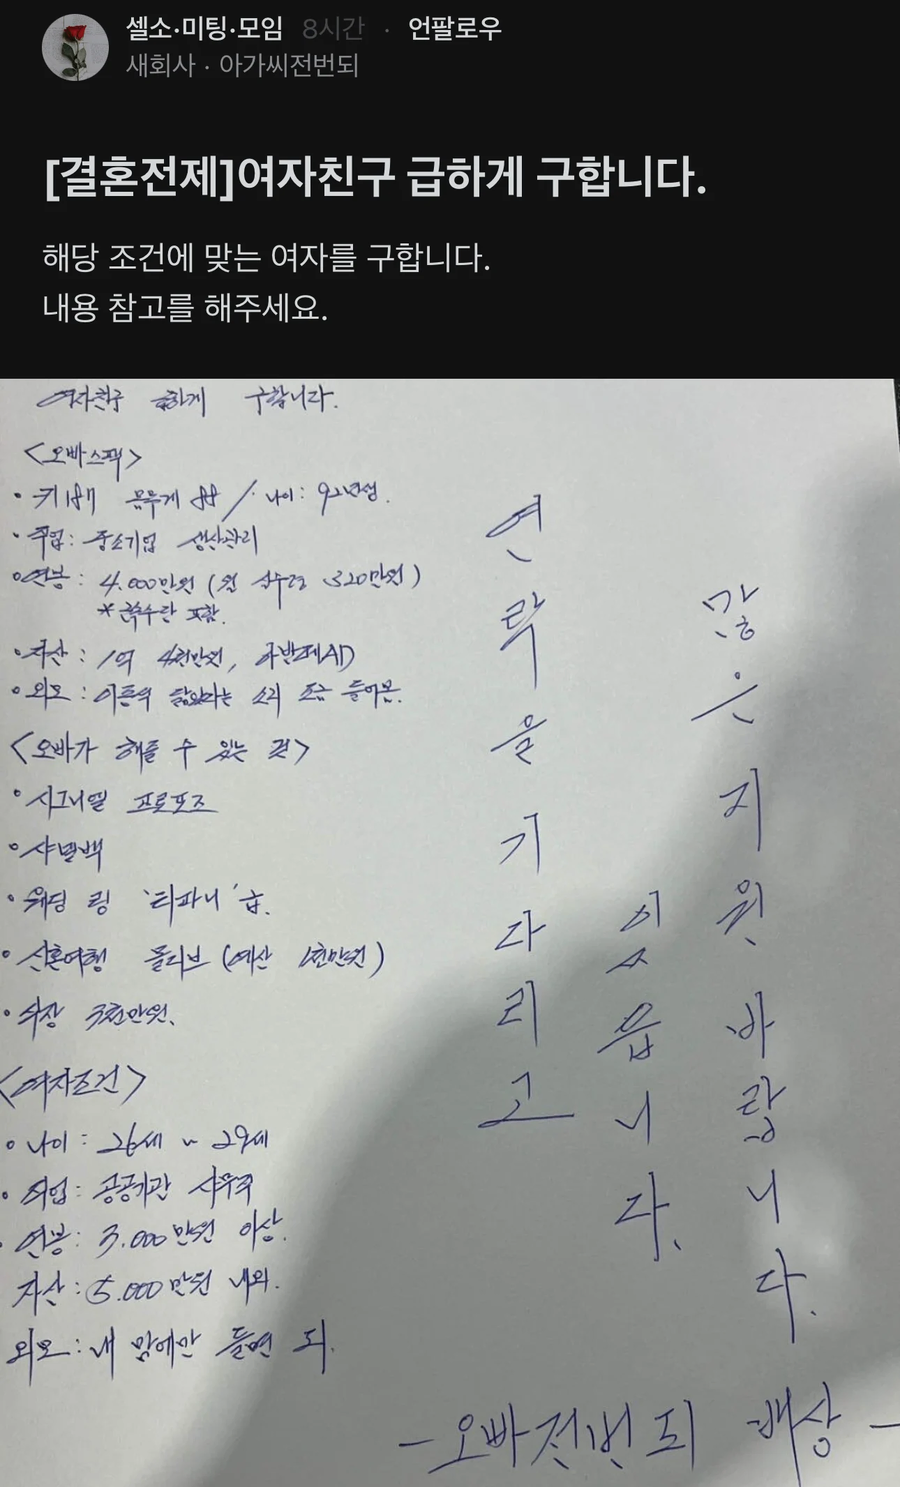 셀소·미팅·모임 8시간 · 언팔로우
새회사 · 아가씨전번되
[결혼전제]여자친구 급하게 구합니다.
해당 조건에 맞는 여자를 구합니다.
내용 참고를 해주세요.
여자친구 급하게 구합니다.
<오빠스팩>
• 키 181 몸무게 88 / 나이: 92년생.
• 취업: 중소기업 생산관리
• 연봉 : 4.000만원 (월 실수령 320만원)
포함.
• 자산 : 1억 4천만원,
• 외모 : 이종석 닮았다는 소리 조금 들어봄.
<오빠가 해줄 수 있는 것>
• 시그니엘 프로포즈
• 샤넬백
• 웨딩 링 '티파니' 급.
• 신혼여행 몰디브 (예산 1천만원)
<여자조건>
• 나이 : 26세 ~ 29세
• 취업 : 공공기관 사무직
• 연봉 : 3.000만원 이상.
자산 : 5.000만원 내외.
외모 : 내 맘에만 들면 되.
연락을 기다리고
있읍니다.
많은 지원바랍니다.
- 오빠전번되 배상 -